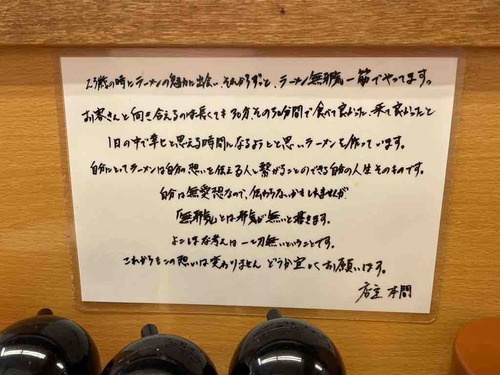 23歳の時とラーメンの魅力に出会い、それからずっと、ラーメン無邪気一筋でやってます。
お客さんと向き合えるのは長くても30分、その30分間で食べて良かった、来て良かったと
1日の中で幸せと思える時間になるようにと思いラーメンを作っています。
自分にとってラーメンは自分の想いを伝える人と繋がることのできる自分の人生そのものです。
自分は無愛想なので、伝わらないかもしれませんが
「無邪気」とは邪気が無いと書きます。
よこしまな考えは一切無いということです。
これからもこの想いは変わりません どうか宜しくお願いします。
店主 本間